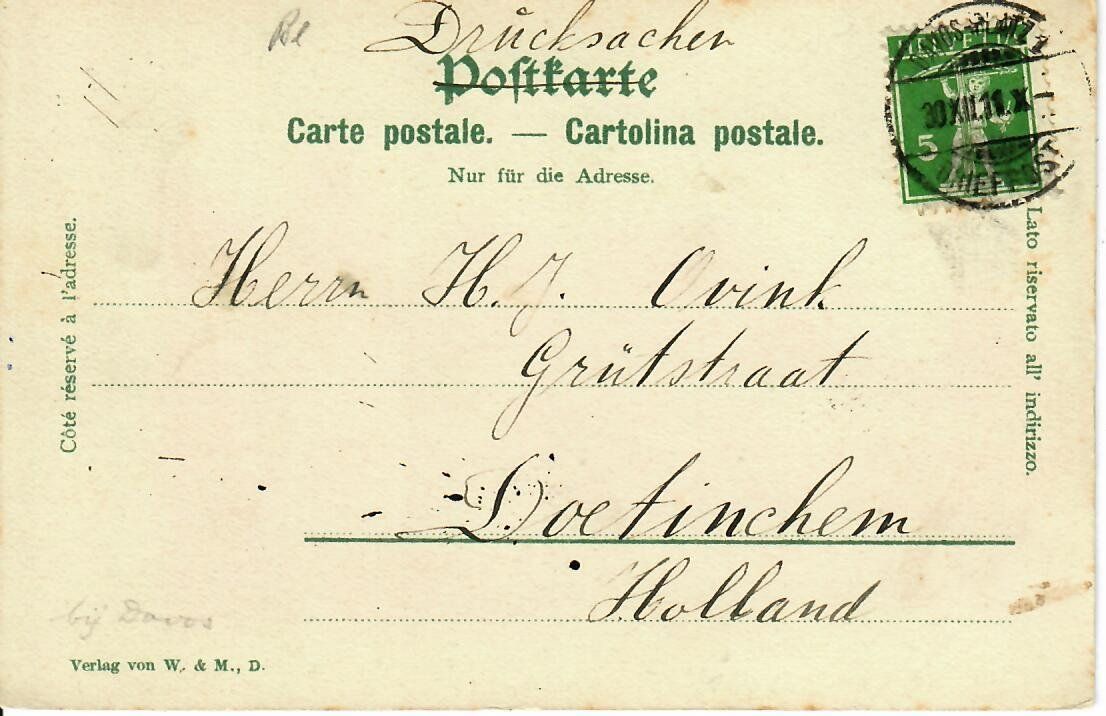 Drucksachen
Postkarte
Carte postale. — Cartolina postale.
Nur für die Adresse.
DAVOS-PLATZ
30.XII.11.X
BRIEFPOST
HELVETIA
5
Côté réservé à l'adresse.
Lato riservato all' indirizzo.
Herrn H. J. Ovink
Grütstraat
Doetinchem
Holland
bij Davos
Verlag von W. & M., D.